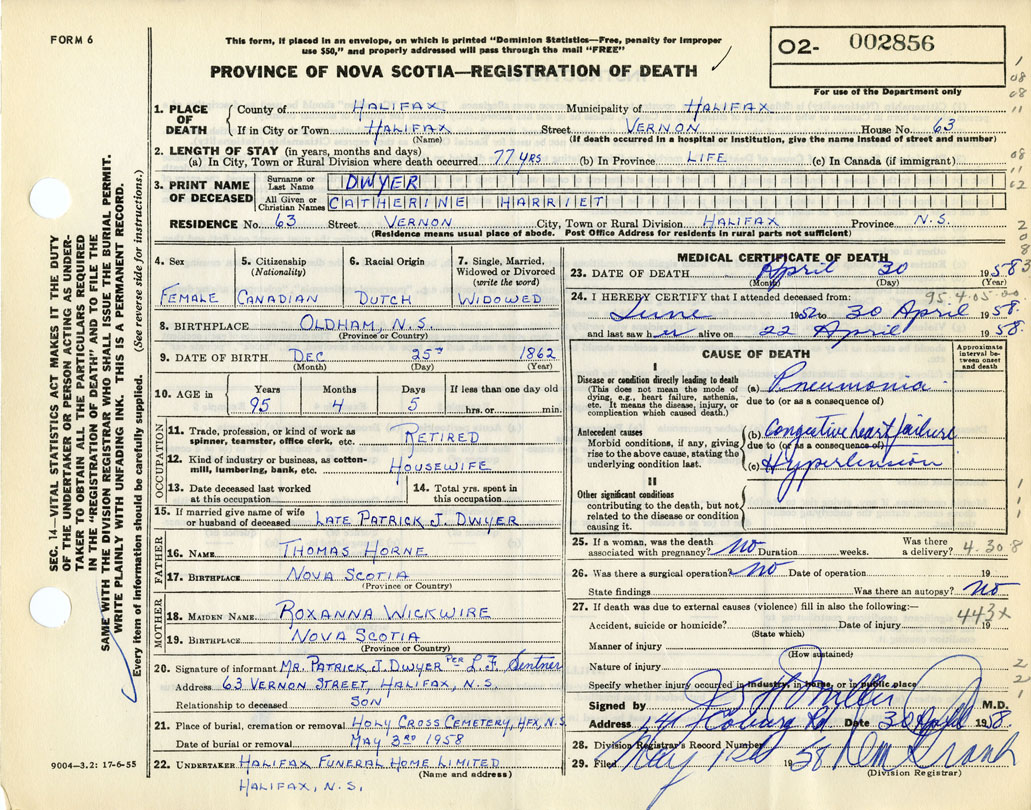 FORM 6
This form, if placed in an envelope, on which is printed "Dominion Statistics—Free, penalty for improper
use $50," and properly addressed will pass through the mail "FREE"
O2- 002856
For use of the Department only
PROVINCE OF NOVA SCOTIA—REGISTRATION OF DEATH
1. PLACE OF DEATH County of HALIFAX Municipality of HALIFAX
If in City or Town HALIFAX Street VERNON House No. 63
(Name) (If death occurred in a hospital or institution, give the name instead of street and number)
2. LENGTH OF STAY (in years, months and days)
(a) In City, Town or Rural Division where death occurred 77 YRS (b) In Province LIFE (c) In Canada (if immigrant)
3. PRINT NAME OF DECEASED
Surname or Last Name DWYER
All Given or Christian Names CATHERINE HARRIET
RESIDENCE No. 63 Street VERNON City, Town or Rural Division HALIFAX Province N.S.
(Residence means usual place of abode. Post Office Address for residents in rural parts not sufficient)
SEC. 14—VITAL STATISTICS ACT MAKES IT THE DUTY
OF THE UNDERTAKER OR PERSON ACTING AS UNDER-
TAKER TO OBTAIN ALL THE PARTICULARS REQUIRED
IN THE "REGISTRATION OF DEATH" AND TO FILE THE
SAME WITH THE DIVISION REGISTRAR WHO SHALL ISSUE THE BURIAL PERMIT.
WRITE PLAINLY WITH UNFADING INK. THIS IS A PERMANENT RECORD.
Every item of information should be carefully supplied. (See reverse side for instructions.)
4. Sex FEMALE
5. Citizenship (Nationality) CANADIAN
6. Racial Origin DUTCH
7. Single, Married, Widowed or Divorced (write the word) WIDOWED
8. BIRTHPLACE OLDHAM, N.S.
(Province or Country)
9. DATE OF BIRTH DEC 25TH 1862
(Month) (Day) (Year)
10. AGE in Years Months Days If less than one day old
95 4 5 hrs. or min.
OCCUPATION
11. Trade, profession, or kind of work as
spinner, teamster, office clerk, etc. RETIRED
12. Kind of industry or business, as cotton-
mill, lumbering, bank, etc. HOUSEWIFE
13. Date deceased last worked
at this occupation
14. Total yrs. spent in
this occupation
15. If married give name of wife
or husband of deceased LATE PATRICK J. DWYER
FATHER
16. NAME THOMAS HORNE
17. BIRTHPLACE NOVA SCOTIA
(Province or Country)
MOTHER
18. MAIDEN NAME ROXANNA WICKWIRE
19. BIRTHPLACE NOVA SCOTIA
(Province or Country)
20. Signature of informant MR. PATRICK J. DWYER PER L. F.
Address 63 VERNON STREET, HALIFAX, N.S.
Relationship to deceased SON
21. Place of burial, cremation or removal HOLY CROSS CEMETERY, HFX, N.S.
Date of burial or removal MAY 3RD 1958
22. UNDERTAKER HALIFAX FUNERAL HOME LIMITED
(Name and address)
HALIFAX, N.S.
9004—3.2: 17-6-55
MEDICAL CERTIFICATE OF DEATH
23. DATE OF DEATH April 30 1958
(Month) (Day) (Year)
24. I HEREBY CERTIFY that I attended deceased from: 95.4.05.00
June 1952 to 30 April 1958.
and last saw her alive on 22 April 1958.
CAUSE OF DEATH
Approximate interval between onset and death
I
Disease or condition directly leading to death
(This does not mean the mode of
dying, e.g., heart failure, asthenia,
etc. It means the disease, injury, or
complication which caused death.)
(a) Pneumonia
due to (or as a consequence of)
Antecedent causes
Morbid conditions, if any, giving
rise to the above cause, stating the
underlying condition last.
(b) Congestive heart failure
due to (or as a consequence of)
(c) Hypertension
II
Other significant conditions
contributing to the death, but not
related to the disease or condition
causing it.
25. If a woman, was the death
associated with pregnancy? no Duration weeks. Was there
a delivery? 4.30 8
26. Was there a surgical operation? no Date of operation 19
State findings Was there an autopsy? no
27. If death was due to external causes (violence) fill in also the following:— 443X
Accident, suicide or homicide? Date of injury 19
(State which)
Manner of injury
(How sustained)
Nature of injury
Specify whether injury occurred in industry, in home, or in public place
Signed by Miller M.D.
Address 141 Coburg Rd Date 30 April 1958.
28. Division Registrar's Record Number
29. Filed May 1958
(Division Registrar)